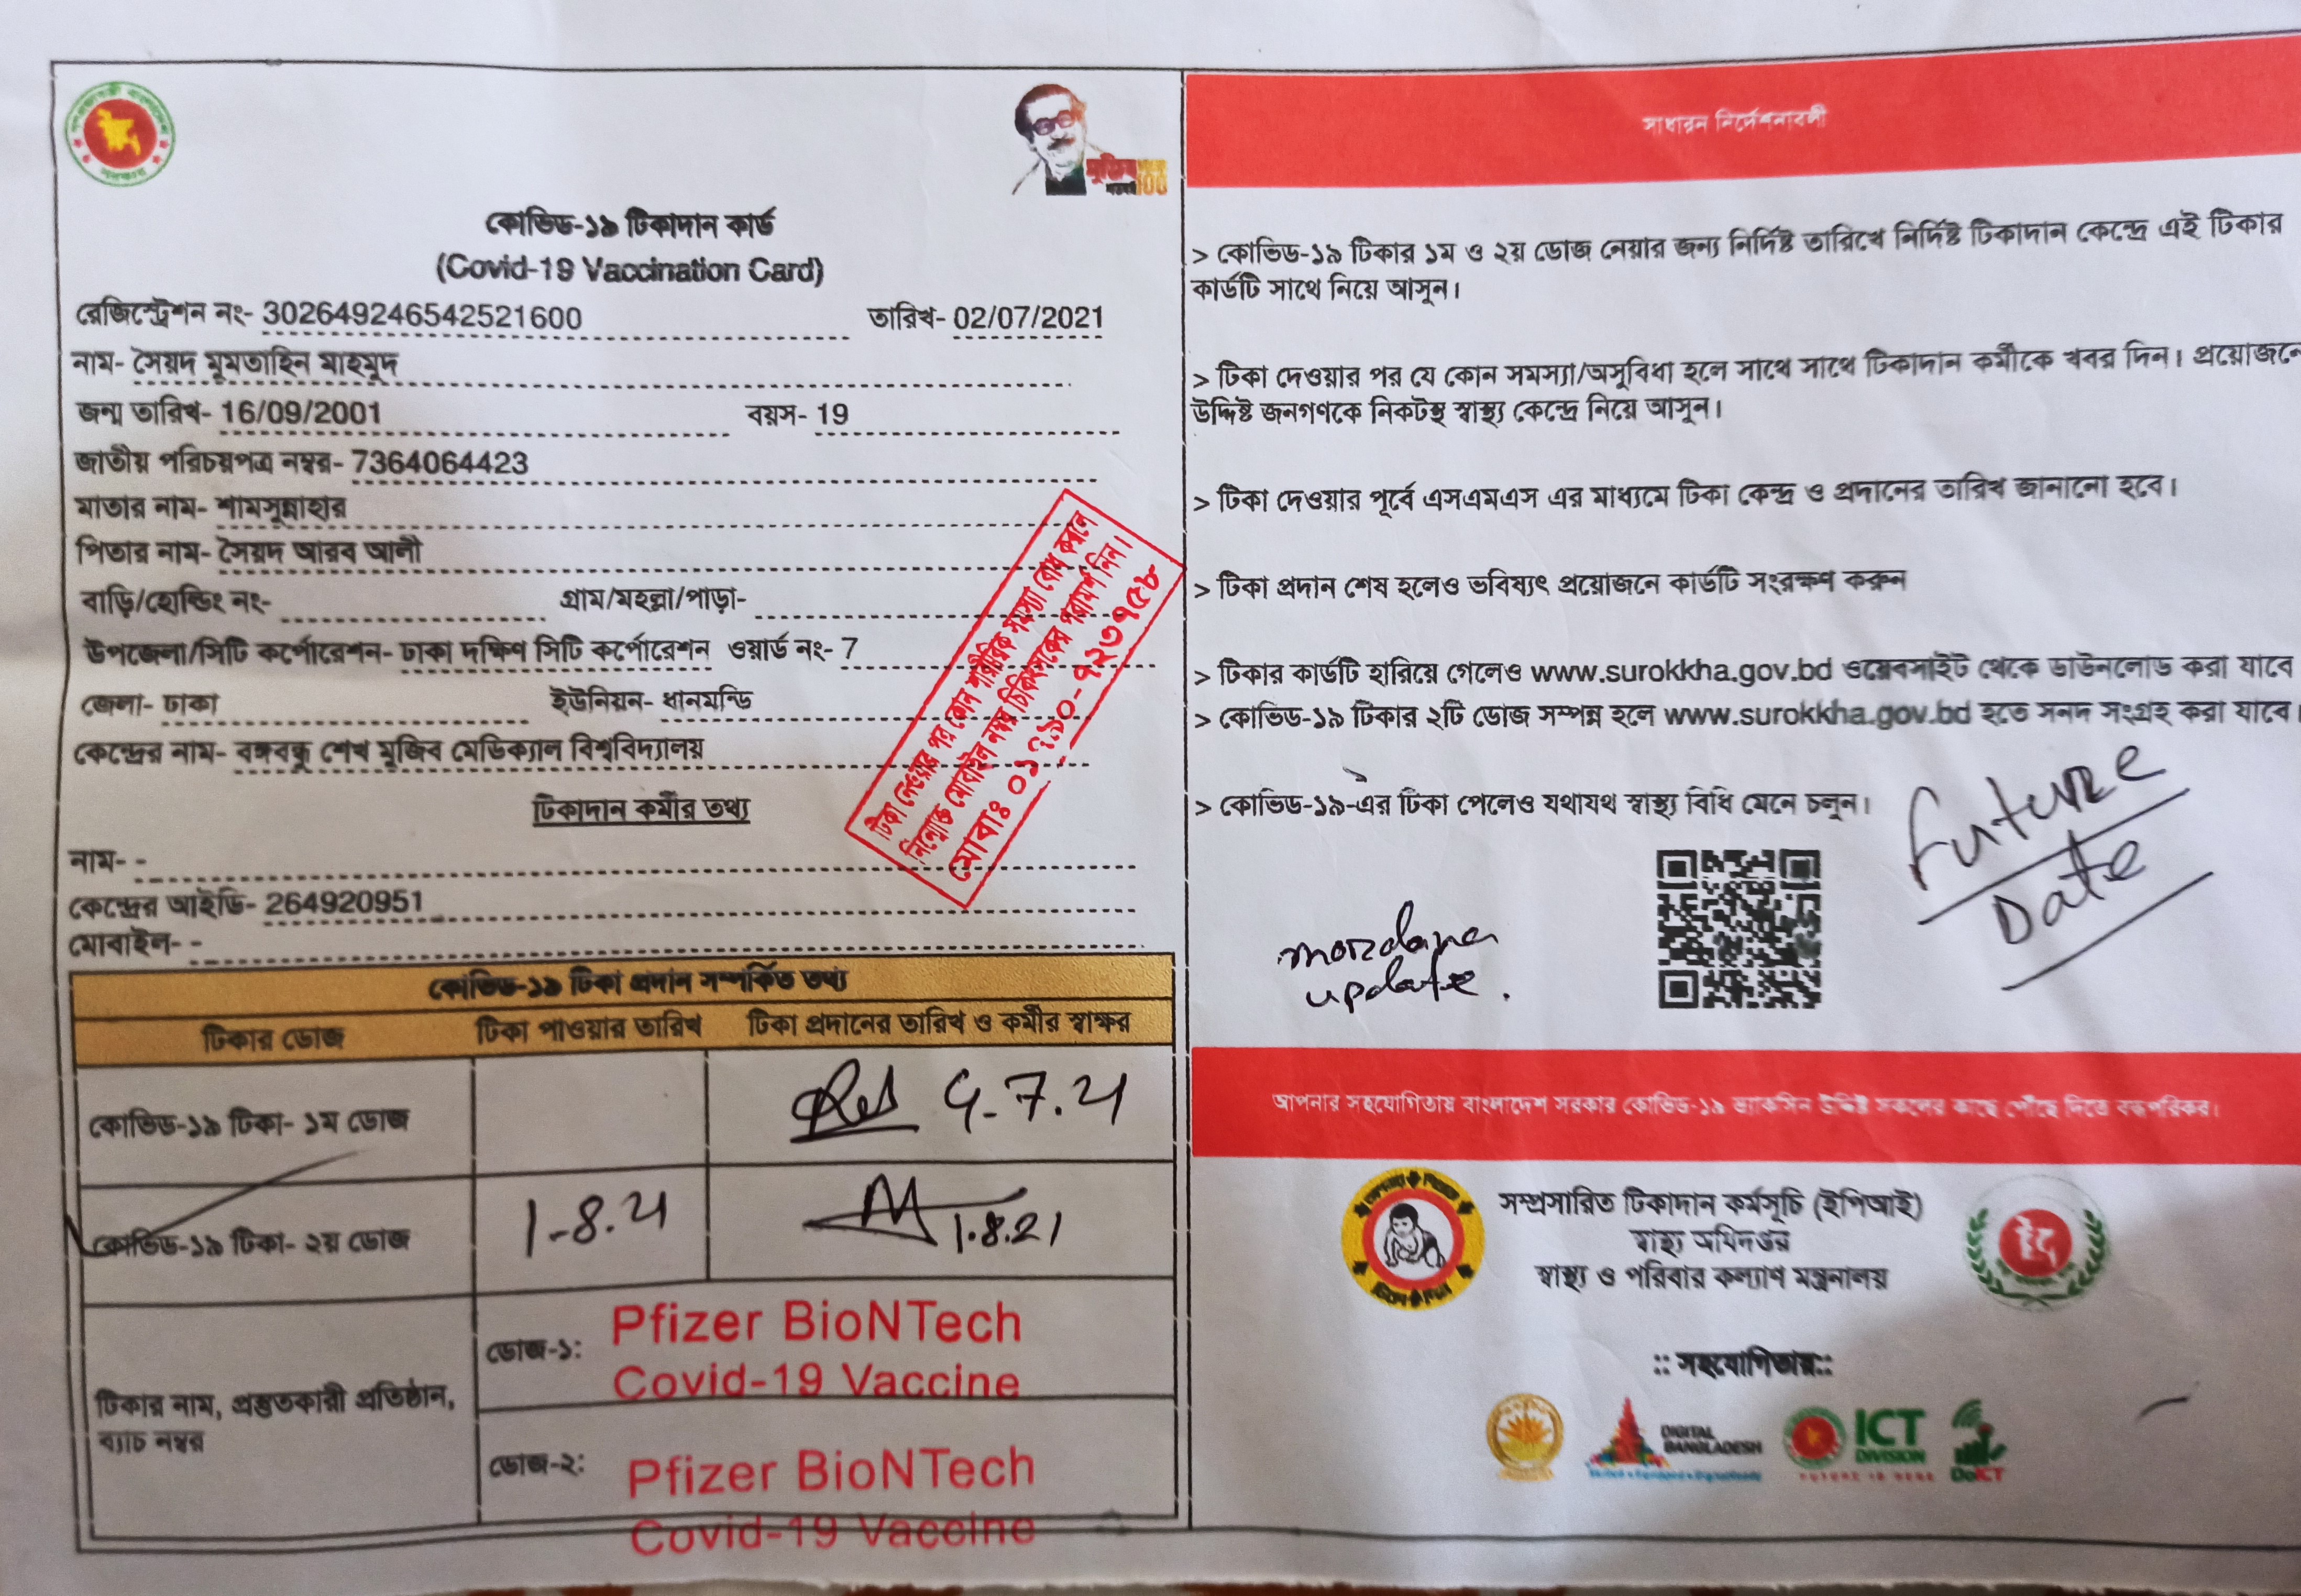 কোভিড-১৯ টিকাদান কার্ড
(Covid-19 Vaccination Card)
রেজিস্ট্রেশন নং- 302649246542521600 তারিখ- 02/07/2021
নাম- সৈয়দ মুমতাহিন মাহমুদ
জন্ম তারিখ- 16/09/2001 বয়স- 19
জাতীয় পরিচয়পত্র নম্বর- 7364064423
মাতার নাম- শামসুন্নাহার
পিতার নাম- সৈয়দ আরব আলী
বাড়ি/হোল্ডিং নং- গ্রাম/মহল্লা/পাড়া-
উপজেলা/সিটি কর্পোরেশন- ঢাকা দক্ষিণ সিটি কর্পোরেশন ওয়ার্ড নং- 7
জেলা- ঢাকা ইউনিয়ন- ধানমন্ডি
কেন্দ্রের নাম- বঙ্গবন্ধু শেখ মুজিব মেডিক্যাল বিশ্ববিদ্যালয়
টিকা নেওয়ার পর কোন শারীরিক সমস্যা বোধ করলে
নিম্নোক্ত মোবাইল নম্বর চিকিৎসকের পরামর্শ নিন।
মোবাঃ
টিকাদান কর্মীর তথ্য
নাম- -
কেন্দ্রের আইডি- 264920951
মোবাইল- -
কোভিড-১৯ টিকা প্রদান সম্পর্কিত তথ্য
টিকার ডোজ টিকা পাওয়ার তারিখ টিকা প্রদানের তারিখ ও কর্মীর স্বাক্ষর
কোভিড-১৯ টিকা- ১ম ডোজ
কোভিড-১৯ টিকা- ২য় ডোজ 1-8.21 1.8.21
টিকার নাম, প্রস্তুতকারী প্রতিষ্ঠান,
ব্যাচ নম্বর
ডোজ-১: Pfizer BioNTech
Covid-19 Vaccine
ডোজ-২: Pfizer BioNTech
Covid-19 Vaccine
সাধারন নির্দেশনাবলী
> কোভিড-১৯ টিকার ১ম ও ২য় ডোজ নেয়ার জন্য নির্দিষ্ট তারিখে নির্দিষ্ট টিকাদান কেন্দ্রে এই টিকার
কার্ডটি সাথে নিয়ে আসুন।
> টিকা দেওয়ার পর যে কোন সমস্যা/অসুবিধা হলে সাথে সাথে টিকাদান কর্মীকে খবর দিন। প্রয়োজনে
উদ্দিষ্ট জনগণকে নিকটস্থ স্বাস্থ্য কেন্দ্রে নিয়ে আসুন।
> টিকা দেওয়ার পূর্বে এসএমএস এর মাধ্যমে টিকা কেন্দ্র ও প্রদানের তারিখ জানানো হবে।
> টিকা প্রদান শেষ হলেও ভবিষ্যৎ প্রয়োজনে কার্ডটি সংরক্ষণ করুন
> টিকার কার্ডটি হারিয়ে গেলেও www.surokkha.gov.bd ওয়েবসাইট থেকে ডাউনলোড করা যাবে
> কোভিড-১৯ টিকার ২টি ডোজ সম্পন্ন হলে www.surokkha.gov.bd হতে সনদ সংগ্রহ করা যাবে।
> কোভিড-১৯-এর টিকা পেলেও যথাযথ স্বাস্থ্য বিধি মেনে চলুন।
Future
Date
update.
আপনার সহযোগিতায় বাংলাদেশ সরকার কোভিড-১৯ ভ্যাকসিন উদ্দিষ্ট সকলের কাছে পৌঁছে দিতে বদ্ধপরিকর।
সম্প্রসারিত টিকাদান কর্মসূচি (ইপিআই)
স্বাস্থ্য অধিদপ্তর
স্বাস্থ্য ও পরিবার কল্যাণ মন্ত্রনালয়
:: সহযোগিতায়::
DIGITAL
BANGLADESH
ICT
DIVISION
FUTURE IS HERE
DoICT